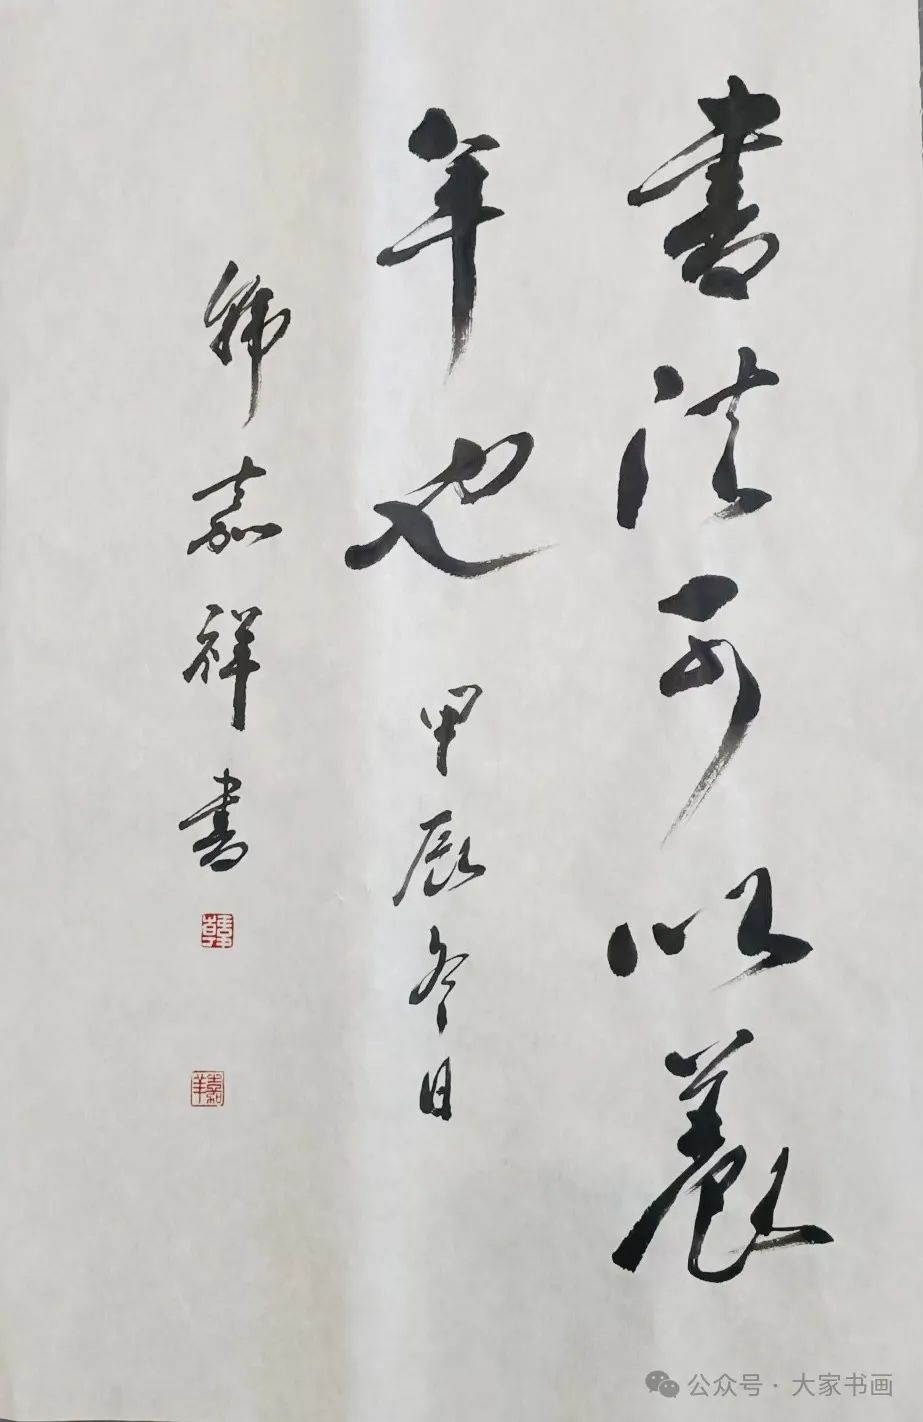 書法可以養
年也 甲辰冬日
韩嘉祥書
韓
嘉祥
公众号·大家书画